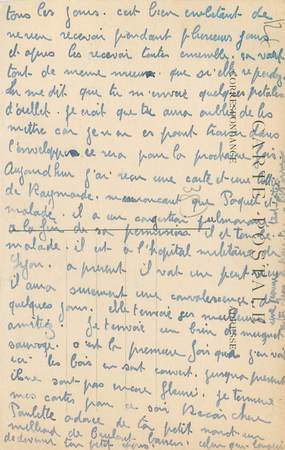 tous les jours. c'est bien embêtant de
ne rien recevoir pendant plusieurs jours
et après les recevoir toutes ensemble, ça vaut
tout de même mieux que si elle se perdaient
tu me dit que tu m'envoie quelques petales
d'œillet. je crois que tu auras oublié de les
mettre car je n'en es point trouvé dans
l'enveloppe ce sera pour la prochaine fois
Aujourd'hui j'ai reçu une carte et une lettre
de Raymonde. m'annonçant que Paquet
malade. il a un congestion pulmonaire
à la fin de sa permission il est tombé
malade. il est à l'hôpital militaire de
Lyon. à présent il vat un peut mieux
il aura surement une convalescence de
quelques jours. elle t'envoie ses meilleures
amitiés. Je t'envoie un brin de muguet
sauvage. c'est la première fois que j'en vois
ici les bois en sont couvert. jusqu'a présent
ils ne sont pas encore fleuri. je termine
mes cartes pour ce soir. Reçois chère
Paulette adorée de ton petit mari un
milliard de brulant baisers. celui qui languit
de devenir ton petit
CARTE POSTALE
CORRESPONDANCE
ADRESSE